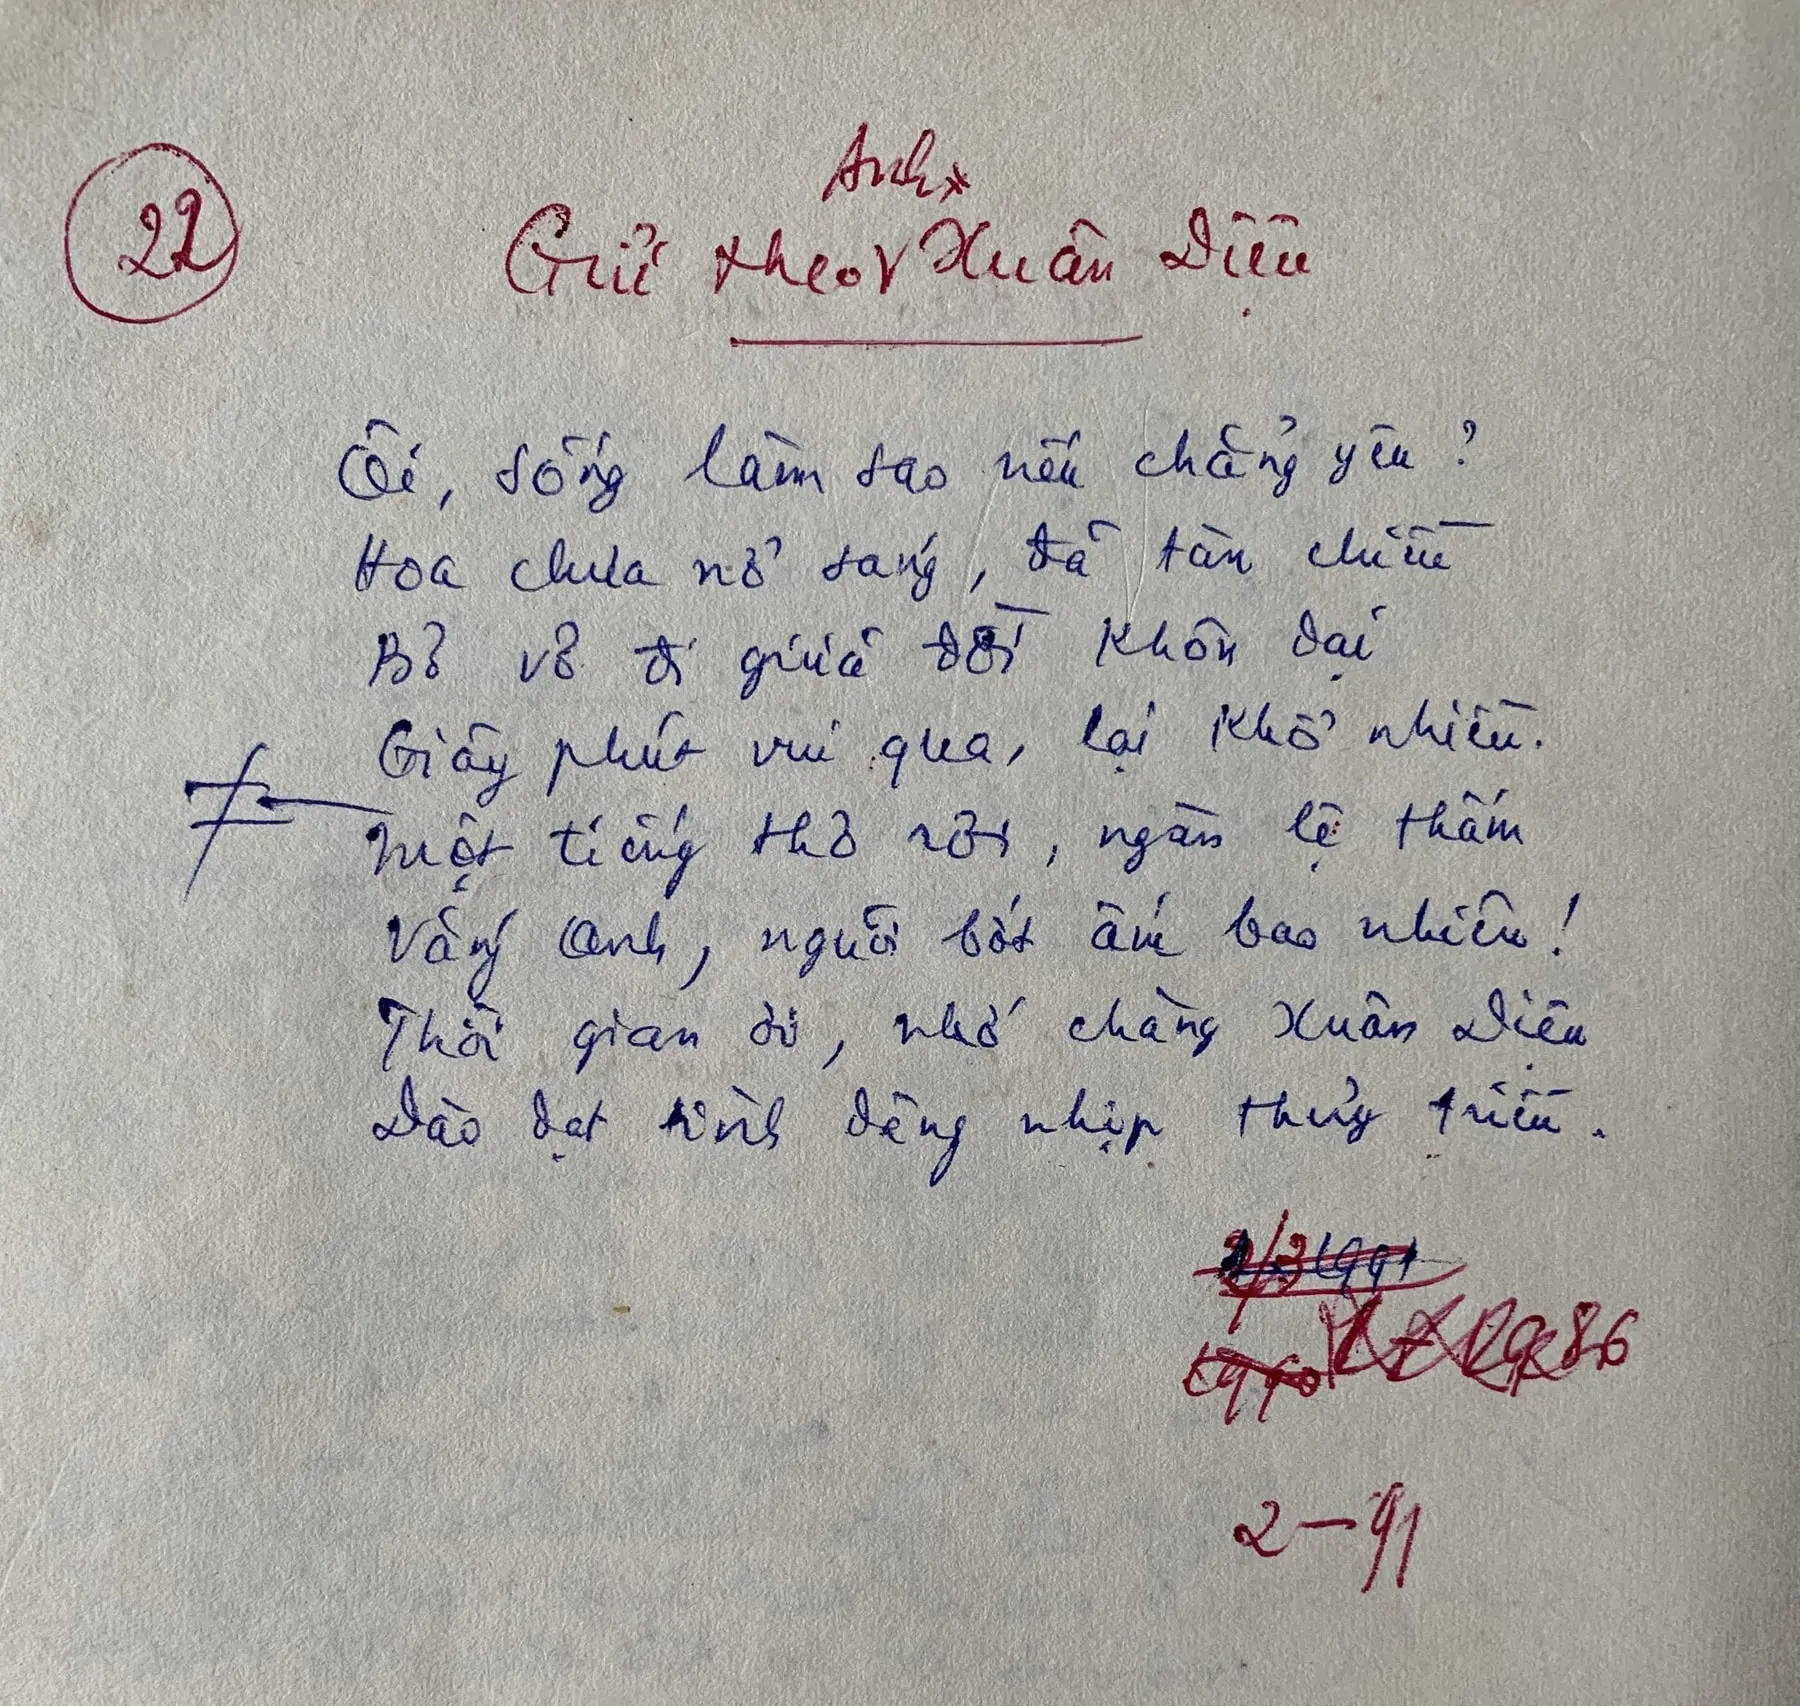 22
Anh
Gửi theo Xuân Diệu
Ôi, sống làm sao nếu chẳng yêu?
Hoa chưa nở sáng, đã tàn chiều
Bơ vơ đi giữa đời khôn dại
Giây phút vui qua, lại khổ nhiều.
Một tiếng thơ rơi, ngàn lệ thấm
Vắng Anh, người bớt ấm bao nhiêu!
Thời gian ơi, nhớ chàng Xuân Diệu
Dào dạt tình dâng nhịp thủy triều.
2/3 1991
1990
86
2-91